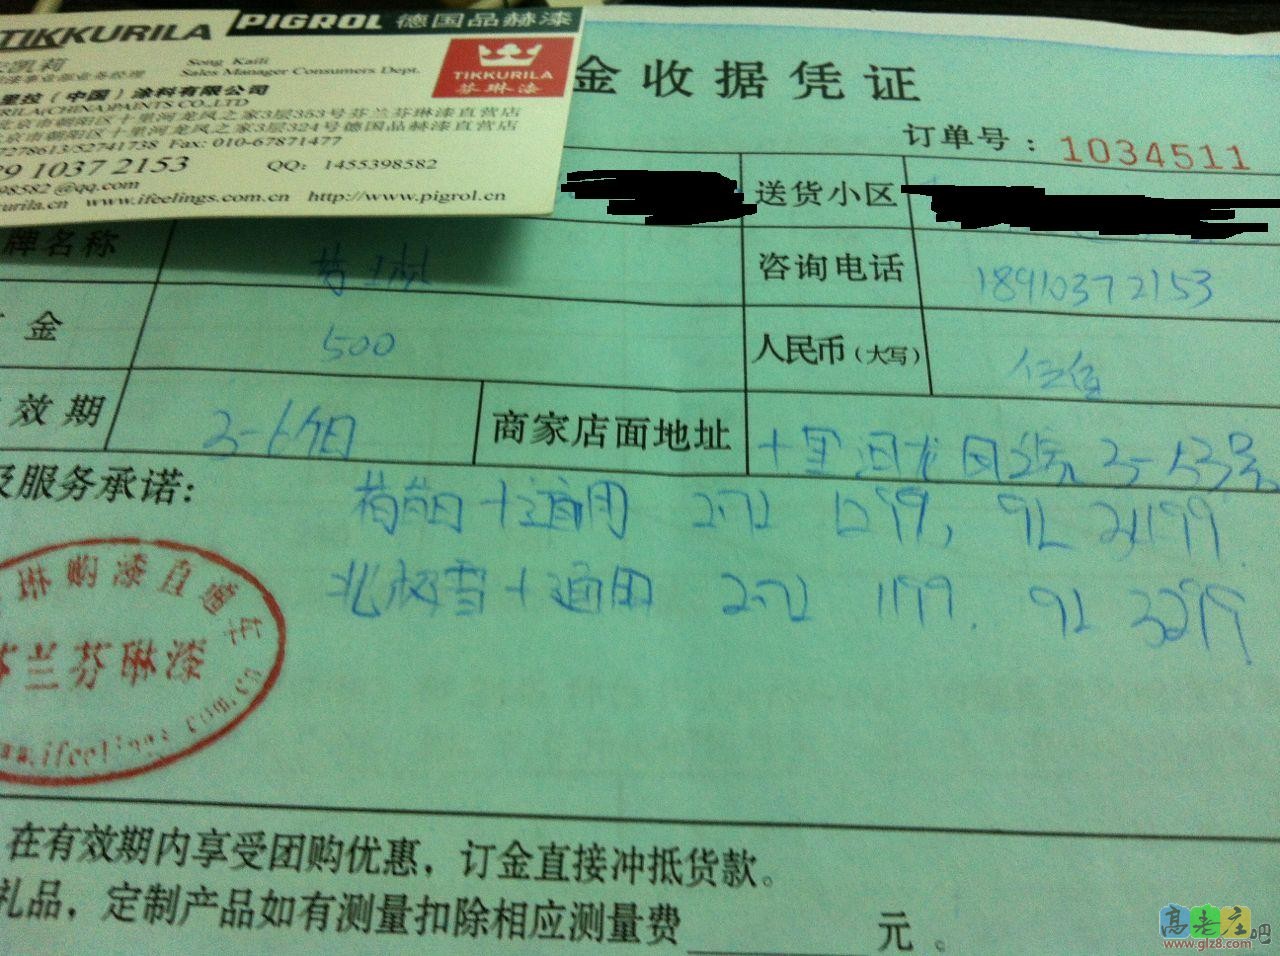 TIKKURILA PIGROL 德国品赫漆
凯莉 Song Kaili
业务经理 Sales Manager Consumers Dept.
TIKKURILA
芬琳漆
里拉（中国）涂料有限公司
RILA(CHINA)PAINTS CO.,LTD
北京市朝阳区十里河龙凤之家3层353号芬兰芬琳漆直营店
北京市朝阳区十里河龙凤之家3层324号德国品赫漆直营店
7278613/52741738 Fax: 010-67871477
9 1037 2153 QQ: 1455398582
98582@qq.com
urila.cn www.ifeelings.com.cn http://www.pigrol.cn
金收据凭证
订单号：1034511
送货小区
牌名称 咨询电话 18910372153
金 500 人民币（大写） 伍佰
效期 商家店面地址 十里河龙凤
及服务承诺：
+通用 1299, 9L
北极雪+通用 1199. 9L 3299
琳购漆直通车
芬兰芬琳漆
www.ifeelings.com.cn
在有效期内享受团购优惠，订金直接冲抵货款。
礼品，定制产品如有测量扣除相应测量费______元。
高老庄吧
www.glz8.com